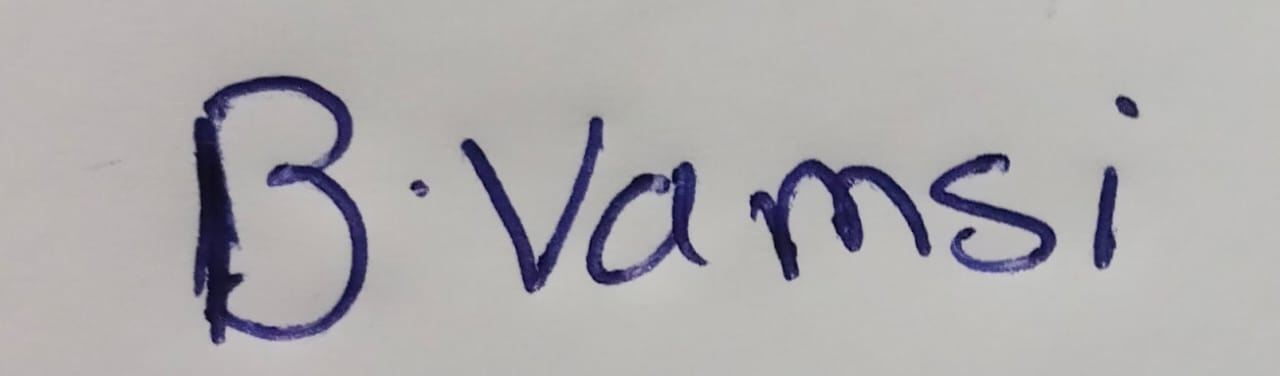 B. Vamsi